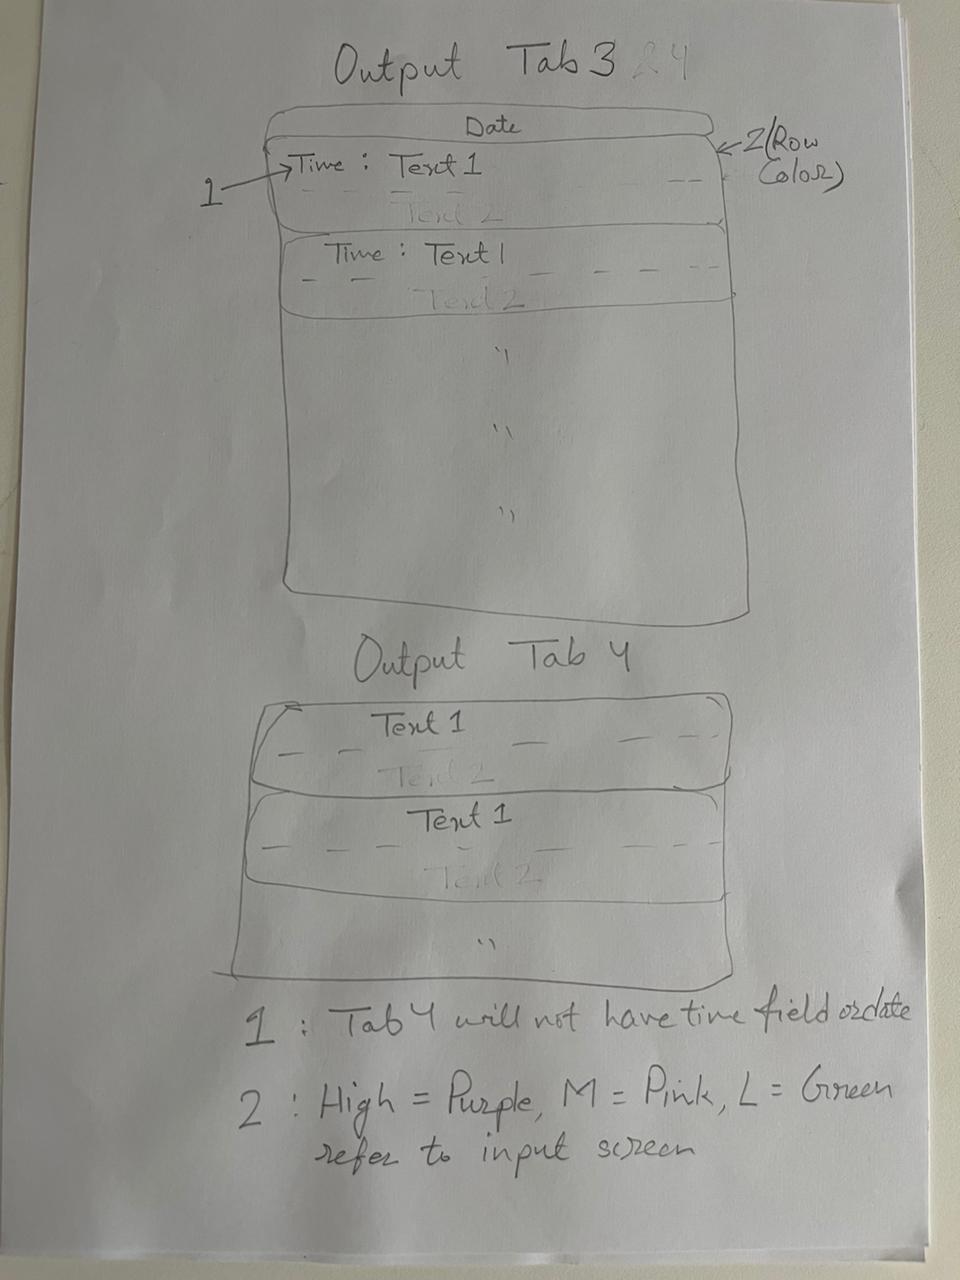 Output Tab 3 24
Date
2 (Row
Color)
Time : Text 1
1
Text 2
Time : Text 1
Text 2
"
"
"
Output Tab 4
Text 1
Text 2
Text 1
Text 2
"
1 : Tab 4 will not have time field or date
2 : High = Purple, M = Pink, L = Green
refer to input screen